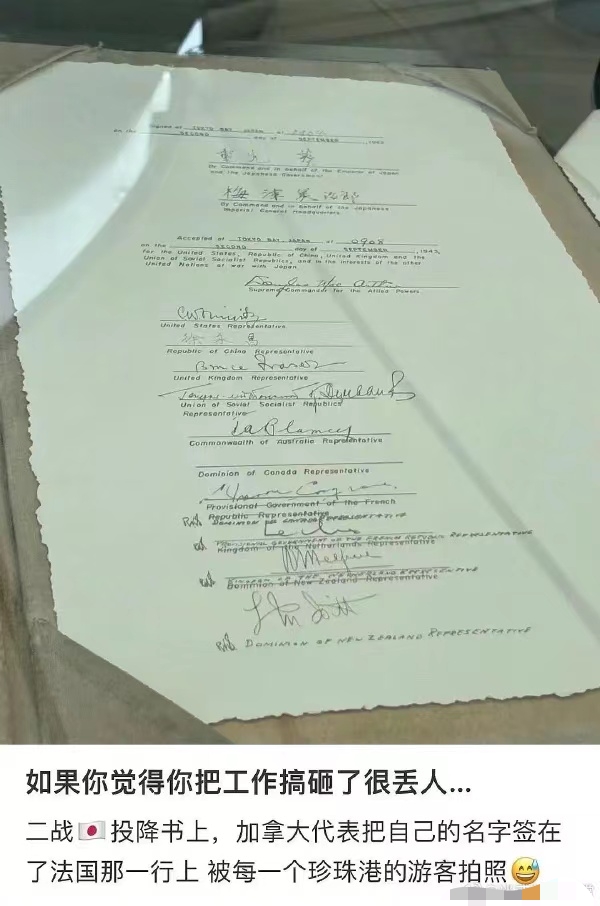 Signed at TOKYO BAY, JAPAN at
on the SECOND day of SEPTEMBER, 1945
重光葵
By Command and in behalf of the Emperor of Japan
and the Japanese Government
梅津美治郎
By Command and in behalf of the Japanese
Imperial General Headquarters
Accepted at TOKYO BAY, JAPAN at 0908
on the SECOND day of SEPTEMBER, 1945,
for the United States, Republic of China, United Kingdom and the
Union of Soviet Socialist Republics, and in the interests of the other
United Nations at war with Japan.
Supreme Commander for the Allied Powers
United States Representative
徐永昌
Republic of China Representative
Bruce Fraser
United Kingdom Representative
Union of Soviet Socialist Republics
Representative
Commonwealth of Australia Representative
Dominion of Canada Representative
Provisional Government of the French
Republic Representative
DOMINION OF CANADA REPRESENTATIVE
PROVISIONAL GOVERNMENT OF THE FRENCH REPUBLIC REPRESENTATIVE
Kingdom of the Netherlands Representative
KINGDOM OF THE NETHERLANDS REPRESENTATIVE
Dominion of New Zealand Representative
DOMINION OF NEW ZEALAND REPRESENTATIVE
如果你觉得你把工作搞砸了很丢人...
二战🇯🇵投降书上，加拿大代表把自己的名字签在
了法国那一行上 被每一个珍珠港的游客拍照😅